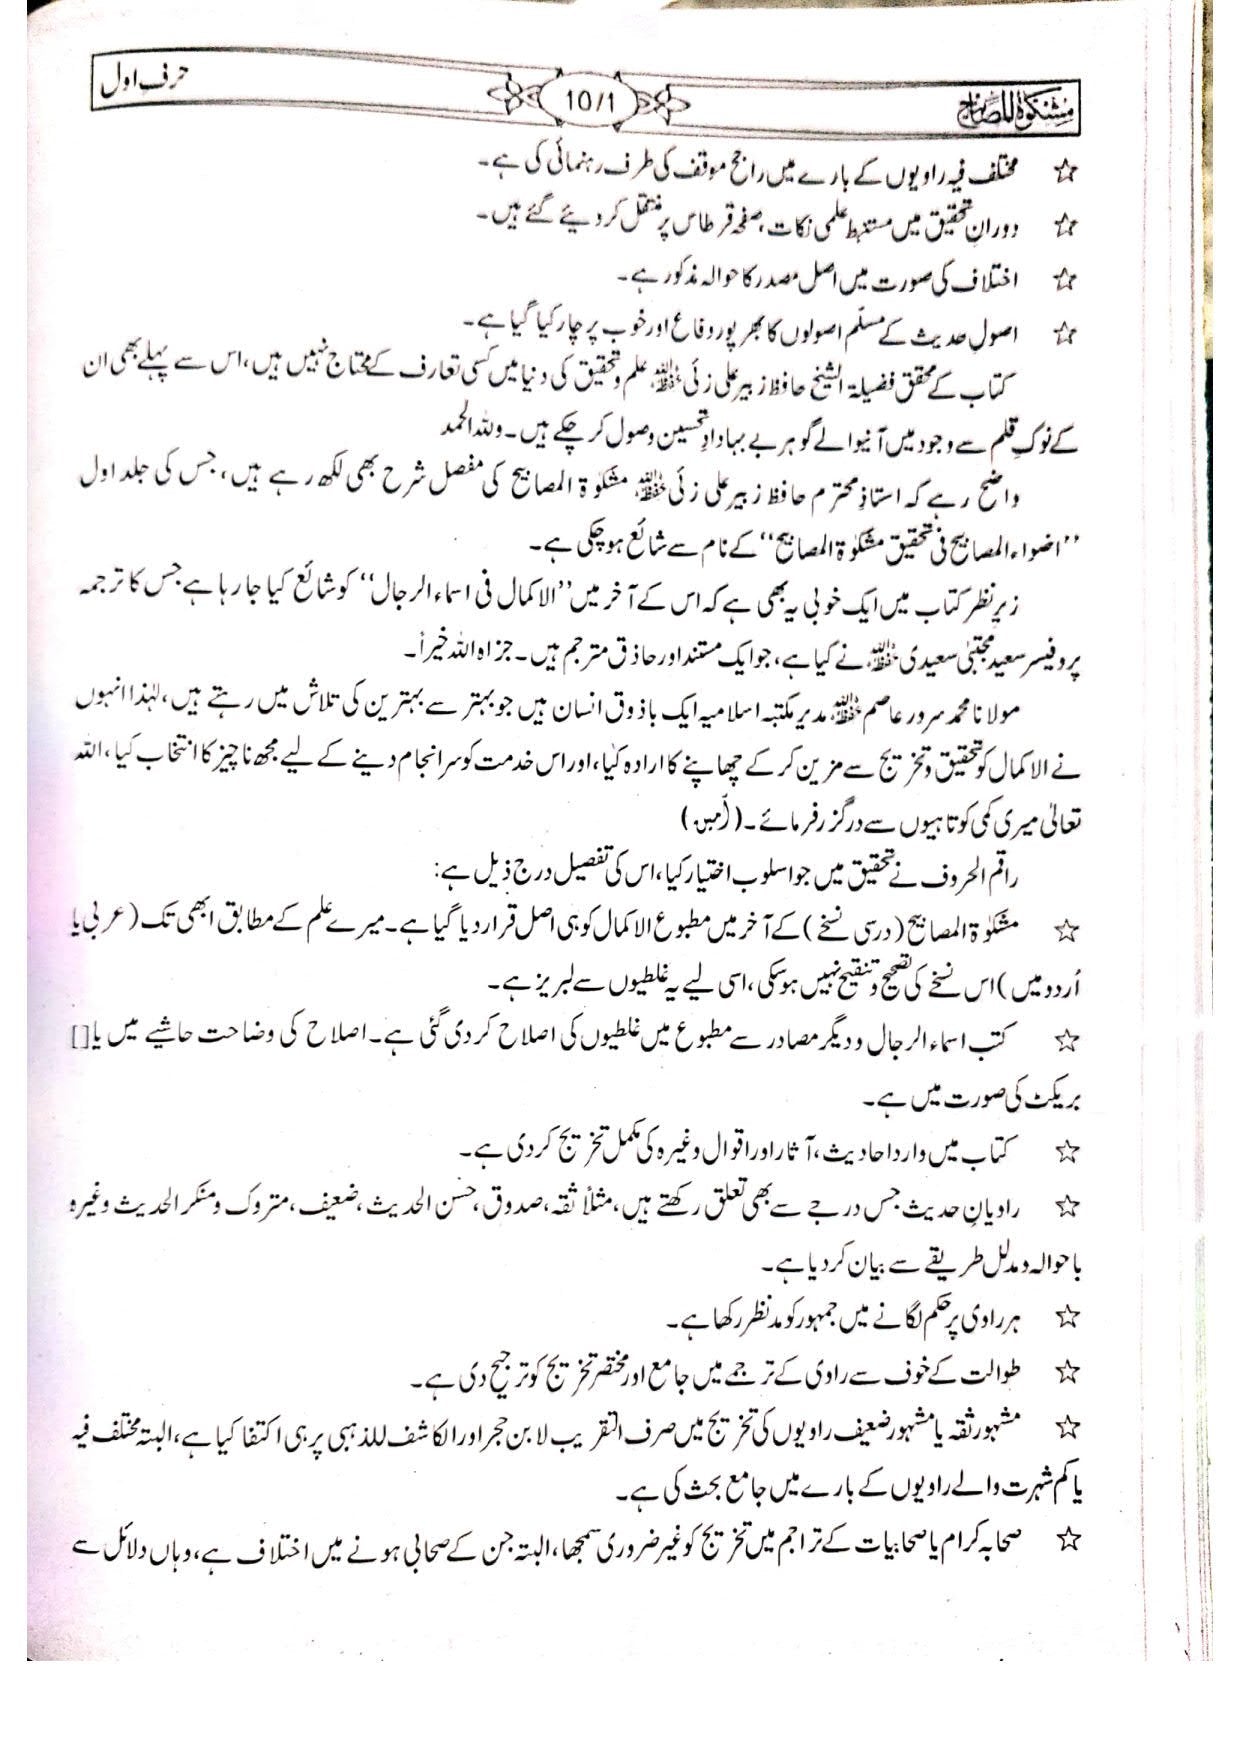 مشکوٰۃ المصابیح 10/1 حرف اول
☆ مختلف فیہ راویوں کے بارے میں راجح موقف کی طرف رہنمائی کی ہے۔
☆ دورانِ تحقیق میں مستنبط علمی نکات، صفحہ قرطاس پر منتقل کر دیئے گئے ہیں۔
☆ اختلاف کی صورت میں اصل مصدر کا حوالہ مذکور ہے۔
☆ اصولِ حدیث کے مسلّم اصولوں کا بھرپور دفاع اور خوب پرچار کیا گیا ہے۔
کتاب کے محقق فضیلۃ الشیخ حافظ زبیر علی زئی حفظہ اللہ، علم و تحقیق کی دنیا میں کسی تعارف کے محتاج نہیں ہیں، اس سے پہلے بھی ان
کے نوکِ قلم سے وجود میں آنیوالے گوہر بے بہا دادِ تحسین وصول کر چکے ہیں۔ وللہ الحمد
واضح رہے کہ استاذِ محترم حافظ زبیر علی زئی حفظہ اللہ، مشکوٰۃ المصابیح کی مفصل شرح بھی لکھ رہے ہیں، جس کی جلد اول
’’اضواء المصابیح فی تحقیق مشکوٰۃ المصابیح‘‘ کے نام سے شائع ہو چکی ہے۔
زیرِ نظر کتاب میں ایک خوبی یہ بھی ہے کہ اس کے آخر میں ’’الاکمال فی اسماء الرجال‘‘ کو شائع کیا جا رہا ہے جس کا ترجمہ
پروفیسر سعید مجتبیٰ سعیدی حفظہ اللہ نے کیا ہے، جو ایک مستند اور حاذق مترجم ہیں۔ جزاہ اللہ خیراً۔
مولانا محمد سرور عاصم حفظہ اللہ مدیر مکتبہ اسلامیہ ایک باذوق انسان ہیں جو بہتر سے بہترین کی تلاش میں رہتے ہیں، لہٰذا انہوں
نے الاکمال کو تحقیق و تخریج سے مزین کر کے چھاپنے کا ارادہ کیا، اور اس خدمت کو سر انجام دینے کے لیے مجھ ناچیز کا انتخاب کیا، اللہ
تعالیٰ میری کمی کوتاہیوں سے درگزر فرمائے۔ (آمین)
راقم الحروف نے تحقیق میں جو اسلوب اختیار کیا، اس کی تفصیل درج ذیل ہے:
☆ مشکوٰۃ المصابیح (درسی نسخے) کے آخر میں مطبوع الاکمال کو ہی اصل قرار دیا گیا ہے۔ میرے علم کے مطابق ابھی تک (عربی یا
اُردو میں) اس نسخے کی تصحیح و تنقیح نہیں ہو سکی، اسی لیے یہ غلطیوں سے لبریز ہے۔
☆ کتب اسماء الرجال و دیگر مصادر سے مطبوع میں غلطیوں کی اصلاح کر دی گئی ہے۔ اصلاح کی وضاحت حاشیے میں یا []
بریکٹ کی صورت میں ہے۔
☆ کتاب میں وارد احادیث، آثار اور اقوال وغیرہ کی مکمل تخریج کر دی ہے۔
☆ راویانِ حدیث جس درجے سے بھی تعلق رکھتے ہیں، مثلاً ثقہ، صدوق، حسن الحدیث، ضعیف، متروک و منکر الحدیث وغیرہ
باحوالہ و مدلل طریقے سے بیان کر دیا ہے۔
☆ ہر راوی پر حکم لگانے میں جمہور کو مدنظر رکھا ہے۔
☆ طوالت کے خوف سے راوی کے ترجمے میں جامع اور مختصر تخریج کو ترجیح دی ہے۔
☆ مشہور ثقہ یا مشہور ضعیف راویوں کی تخریج میں صرف التقریب لابن حجر اور الکاشف للذہبی پر ہی اکتفا کیا ہے، البتہ مختلف فیہ
یا کم شہرت والے راویوں کے بارے میں جامع بحث کی ہے۔
☆ صحابہ کرام یا صحابیات کے تراجم میں تخریج کو غیر ضروری سمجھا، البتہ جن کے صحابی ہونے میں اختلاف ہے، وہاں دلائل سے